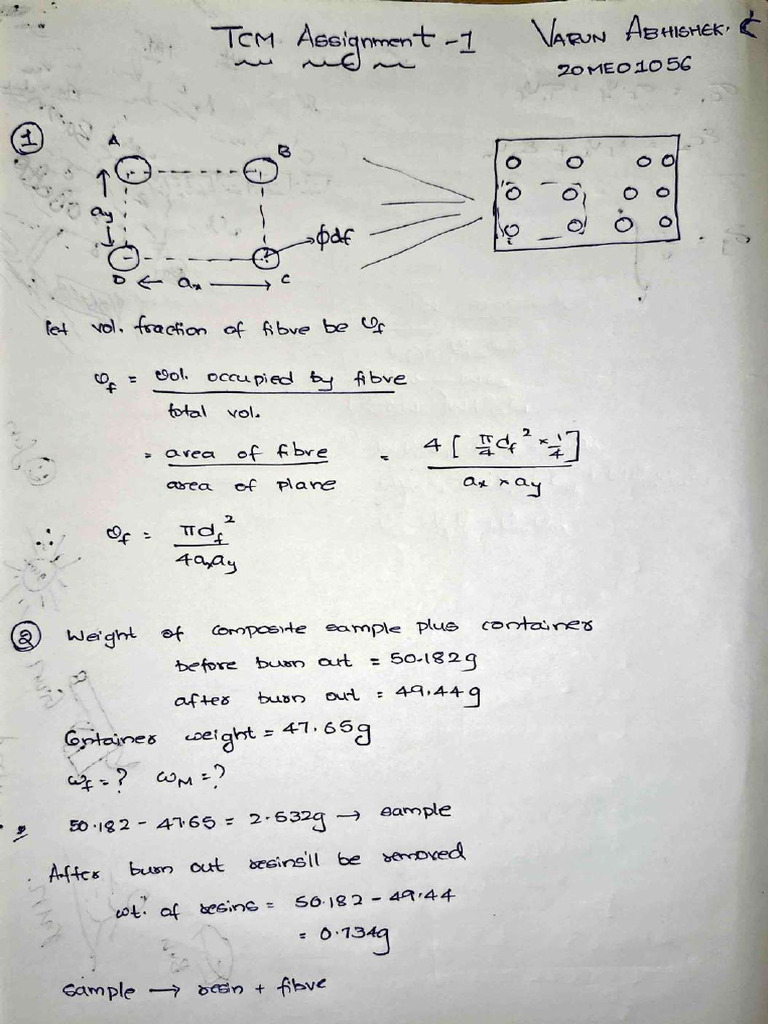 TCM Assignment -1
VARUN ABHISHEK.
20ME01056
1
A B
ay
φdf
D ← ax → C
let vol. fraction of fibre be υf
υf = vol. occupied by fibre / total vol.
= area of fibre / area of plane = 4 [ π/4 df² × 1/4 ] / ax × ay
∴ υf = πdf² / 4axay
2 Weight of composite sample plus container
before burn out = 50.182g
after burn out = 49.44g
Container weight = 47.65g
ωf = ? ωM = ?
50.182 - 47.65 = 2.532g → sample
After burn out resins'll be removed
wt. of resins = 50.182 - 49.44
= 0.734g
sample → resin + fibre